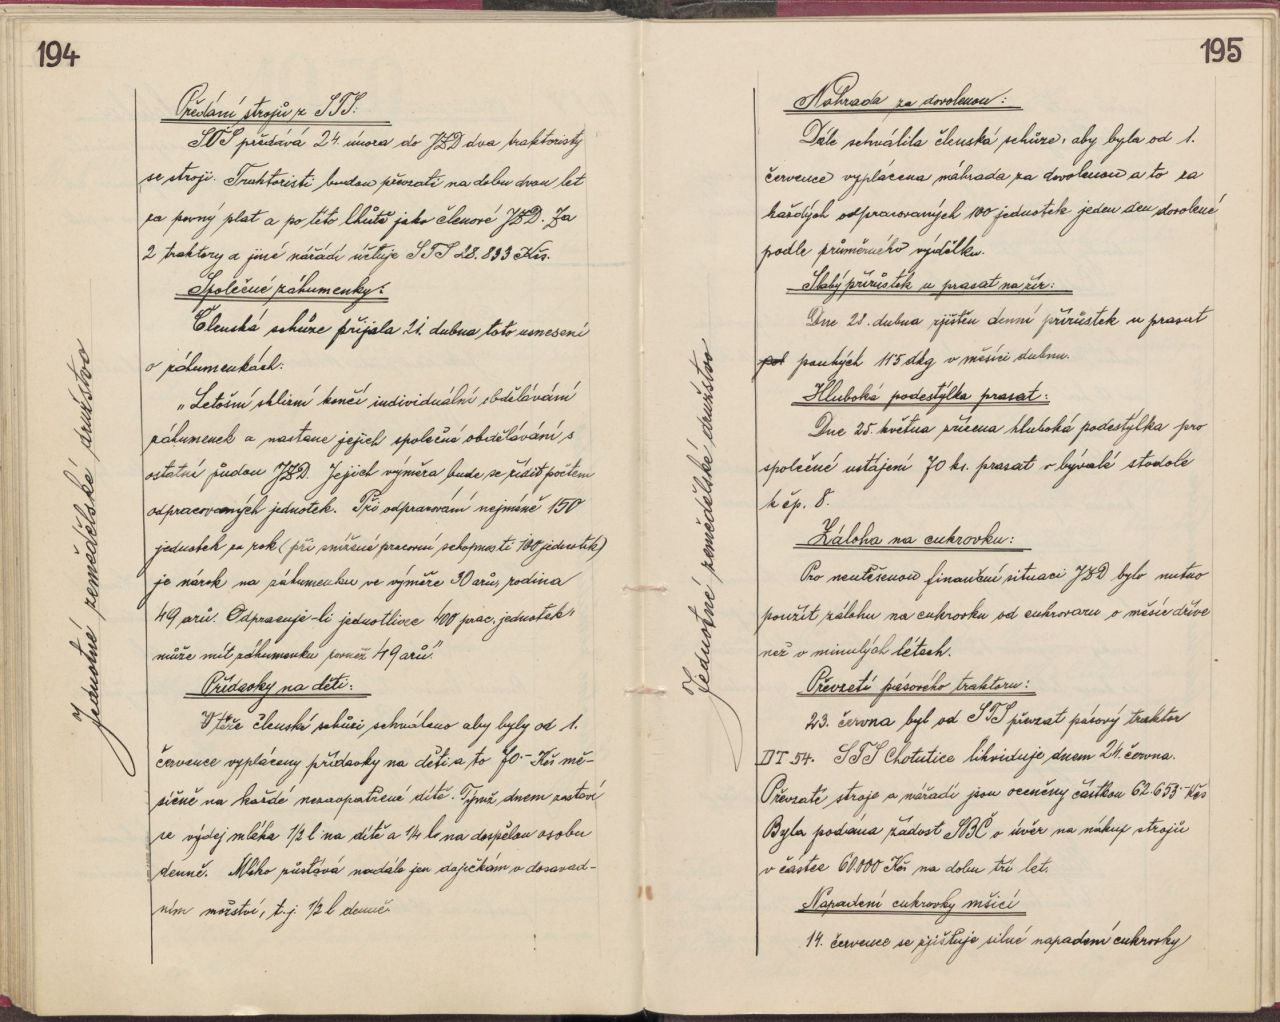 194
Jednotné zemědělské družstvo
Předání strojů z STS:
STS předává 24. února do JZD dva traktoristy
se stroji. Traktoristi budou převzati na dobu dvou let
za pevný plat a po této lhůtě jako členové JZD. Za
2 traktory a jiné nářadí účtuje STS 28.833 Kčs.
Společné záhumenky:
Členská schůze přijala 21. dubna toto usnesení
o záhumenkách:
"Letošní sklizní končí individuální obdělávání
záhumenek a nastane jejich společné obdělávání s
ostatní půdou JZD. Jejich výměra bude se řídit počtem
odpracovaných jednotek. Při odpracování nejméně 150
jednotek za rok (při snížené pracovní schopnosti 100 jednotek)
je nárok na záhumenku ve výměře 30 arů, rodina
49 arů. Odpracuje-li jednotlivec 400 prac. jednotek"
může mít záhumenku rovněž 49 arů."
Přídavky na děti:
V téže členské schůzi schváleno aby byly od 1.
července vypláceny přídavky na děti a to 70.- Kčs mě-
síčně na každé nezaopatřené dítě. Týmž dnem zastaví
se výdej mléka 1/2 l na dítě a 1/4 l na dospělou osobu
denně. Mléko zůstává nadále jen dojičkám v dosavad-
ním množství, t.j. 1/2 l denně.
195
Jednotné zemědělské družstvo
Náhrada za dovolenou:
Dále schválila členská schůze, aby byla od 1.
července vyplácena náhrada za dovolenou a to za
každých odpracovaných 100 jednotek jeden den dovolené
podle průměrného výdělku.
Slabý přírůstek u prasat na žír:
Dne 28. dubna zjištěn denní přírůstek u prasat
pouhých 115 dkg v měsíci dubnu.
Hluboká podestýlka prasat:
Dne 25. května zřízena hluboká podestýlka pro
společné ustájení 70 ks. prasat v bývalé stodole
k čp. 8.
Záloha na cukrovku:
Pro neutěšenou finanční situaci JZD bylo nutno
použít zálohu na cukrovku od cukrovaru o měsíc dříve
než v minulých létech.
Převzetí pásového traktoru:
23. června byl od STS převzat pásový traktor
DT 54. STS Chotutice likviduje dnem 24. června.
Převzaté stroje a nářadí jsou oceněny částkou 62.653.- Kčs
Byla podána žádost SBČ o úvěr na nákup strojů
v částce 60.000 Kčs na dobu tří let.
Napadení cukrovky mšicí
14. července se zjišťuje silné napadení cukrovky